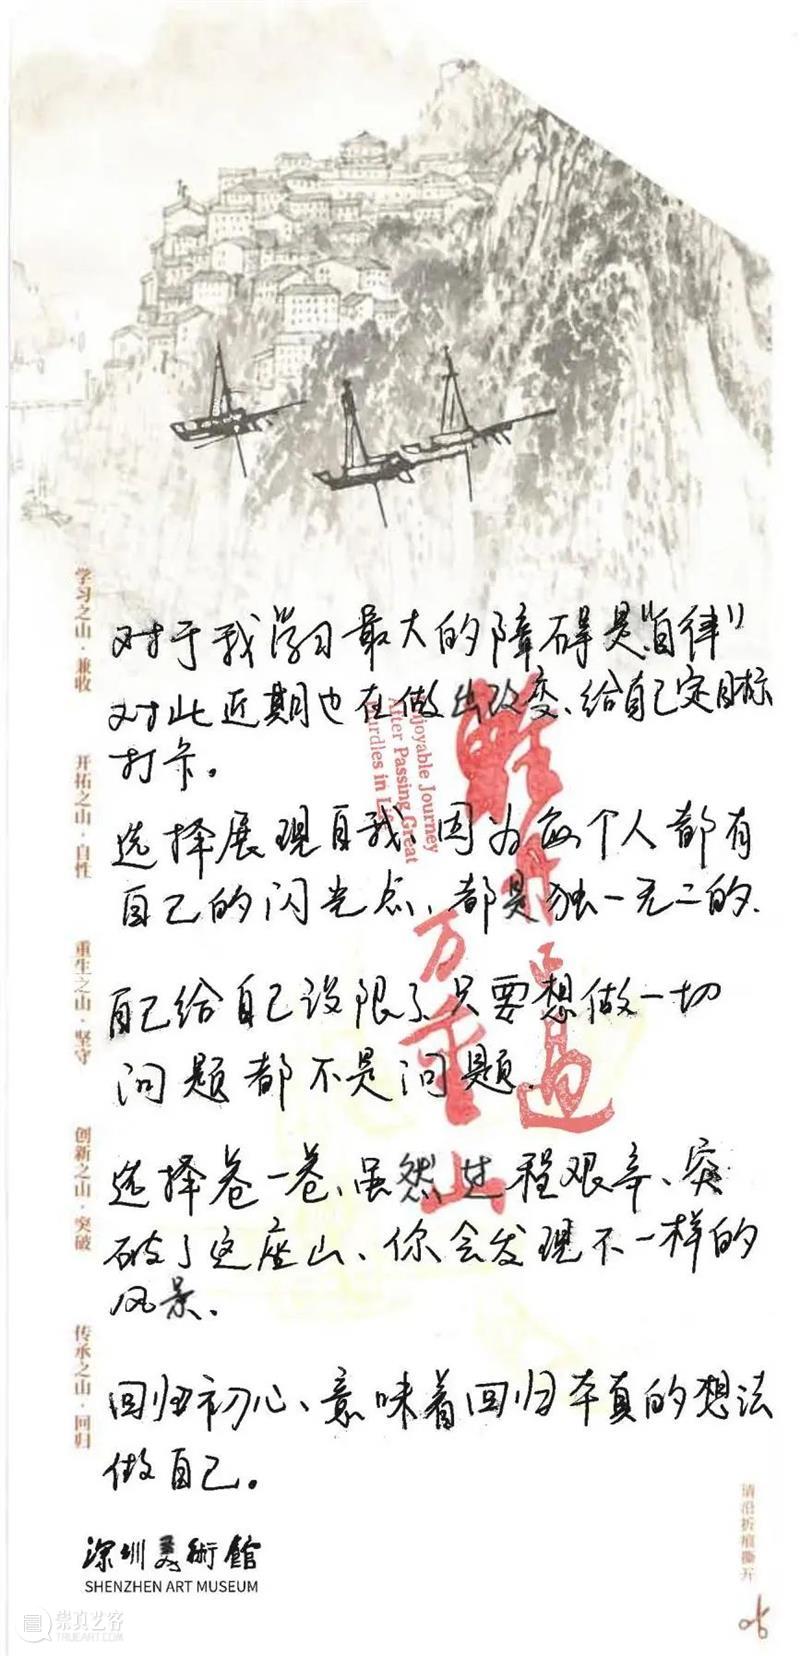 学习之山·兼收
对于我学习最大的障碍是"自律"
对此近期也在做出改变、给自己定目标
打卡。
开拓之山·自性
选择展现自我、因为每个人都有
自己的闪光点、都是独一无二的.
重生之山·坚守
自己给自己设限了只要想做一切
问题都不是问题.
创新之山·突破
选择卷一卷、虽然过程艰辛、突
破了这座山、你会发现不一样的
风景.
传承之山·回归
回归初心、意味着回归本真的想法
做自己。
Enjoyable Journey
After Passing Great
Hurdles in
轻舟已过
万重山
请沿折痕撕开
深圳美術館
SHENZHEN ART MUSEUM
崇真艺客
TRUEART.COM